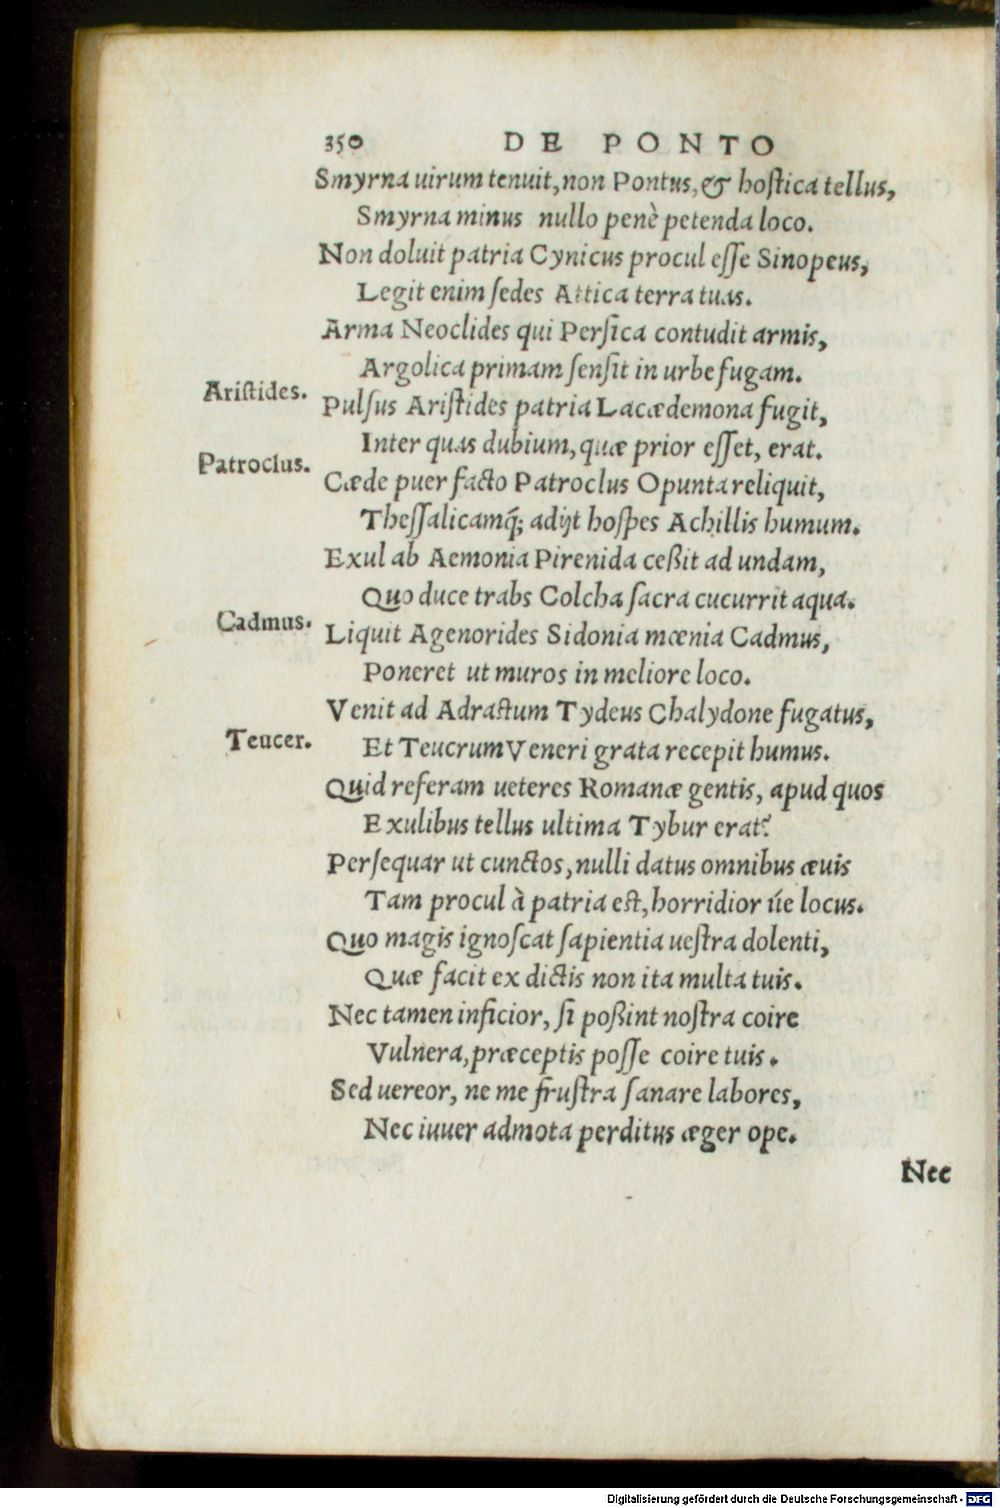 350 DE PONTO
Smyrna uirum tenuit, non Pontus, & hostica tellus,
Smyrna minus nullo penè petenda loco.
Non doluit patria Cynicus procul esse Sinopeus,
Legit enim sedes Attica terra tuas.
Arma Neoclides qui Persica contudit armis,
Argolica primam sensit in urbe fugam.
Aristides.
Pulsus Aristides patria Lacædemona fugit,
Inter quas dubium, quæ prior esset, erat.
Patroclus.
Cæde puer facto Patroclus Opunta reliquit,
Thessalicamq́; adijt hospes Achillis humum.
Exul ab Aemonia Pirenida ceßit ad undam,
Quo duce trabs Colcha sacra cucurrit aqua.
Cadmus.
Liquit Agenorides Sidonia mœnia Cadmus,
Poneret ut muros in meliore loco.
Venit ad Adrastum Tydeus Chalydone fugatus,
Teucer.
Et Teucrum Veneri grata recepit humus.
Quid referam ueteres Romanæ gentis, apud quos
Exulibus tellus ultima Tybur erat?
Persequar ut cunctos, nulli datus omnibus æuis
Tam procul à patria est, horridior úe locus.
Quo magis ignoscat sapientia uestra dolenti,
Quæ facit ex dictis non ita multa tuis.
Nec tamen inficior, si poßint nostra coire
Vulnera, præceptis posse coire tuis.
Sed uereor, ne me frustra sanare labores,
Nec iuuer admota perditus æger ope.
Nec
Digitalisierung gefördert durch die Deutsche Forschungsgemeinschaft - DFG